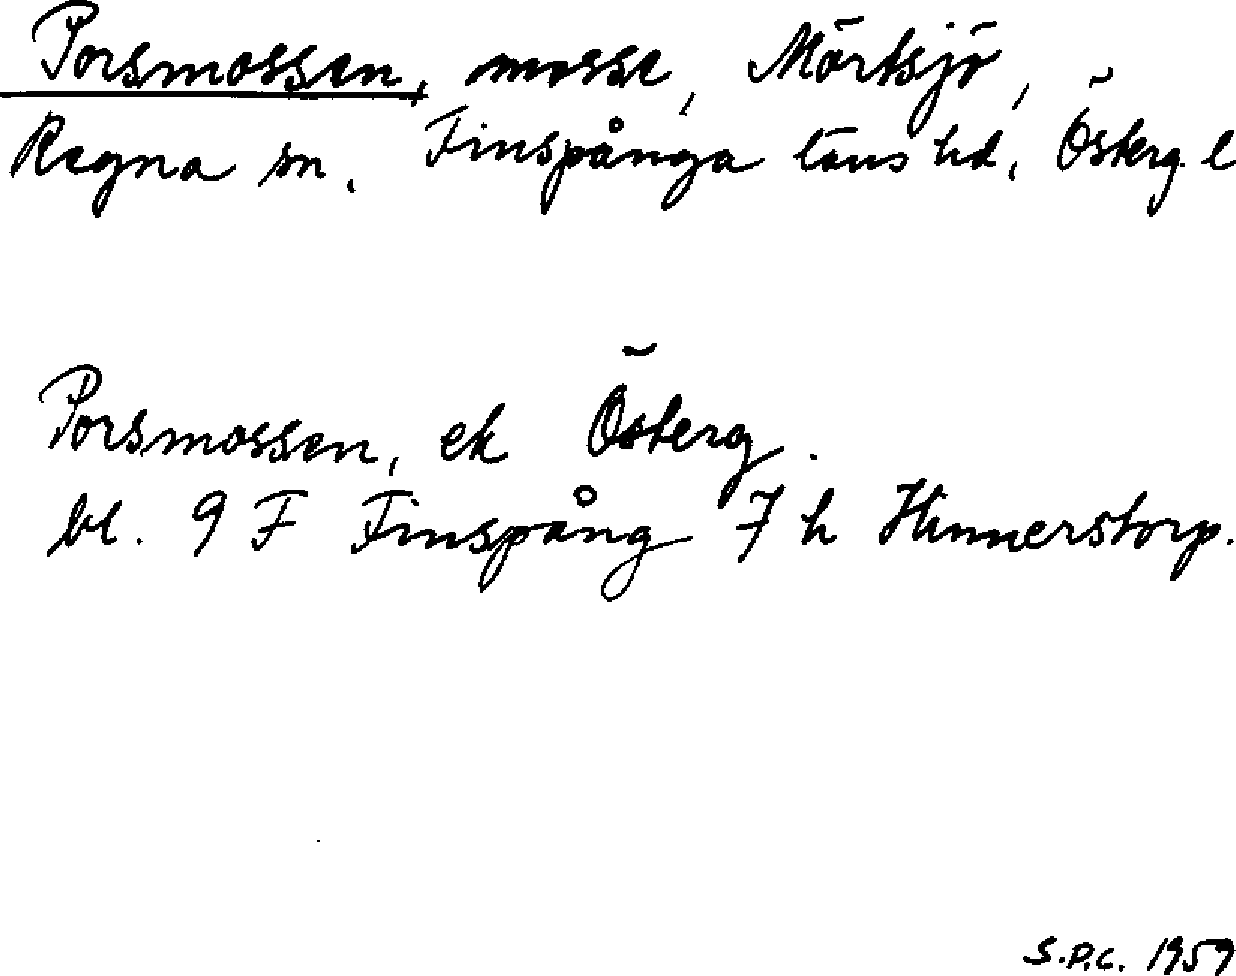 Porsmossen, mosse, Mörtsjö,
Regna sn, Finspånga läns hd, Österg. l
Porsmossen, ek Österg.
bl. 9 F Finspång 7 h Hunnerstorp.
S.P.C. 1959